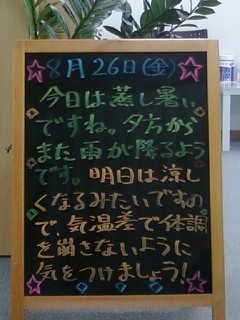 8月26日(金)
今日は蒸し暑い
ですね。夕方から
また雨が降るよう
です。明日は涼し
くなるみたいですの
で、気温差で体調
を崩さないように
気をつけましょう!